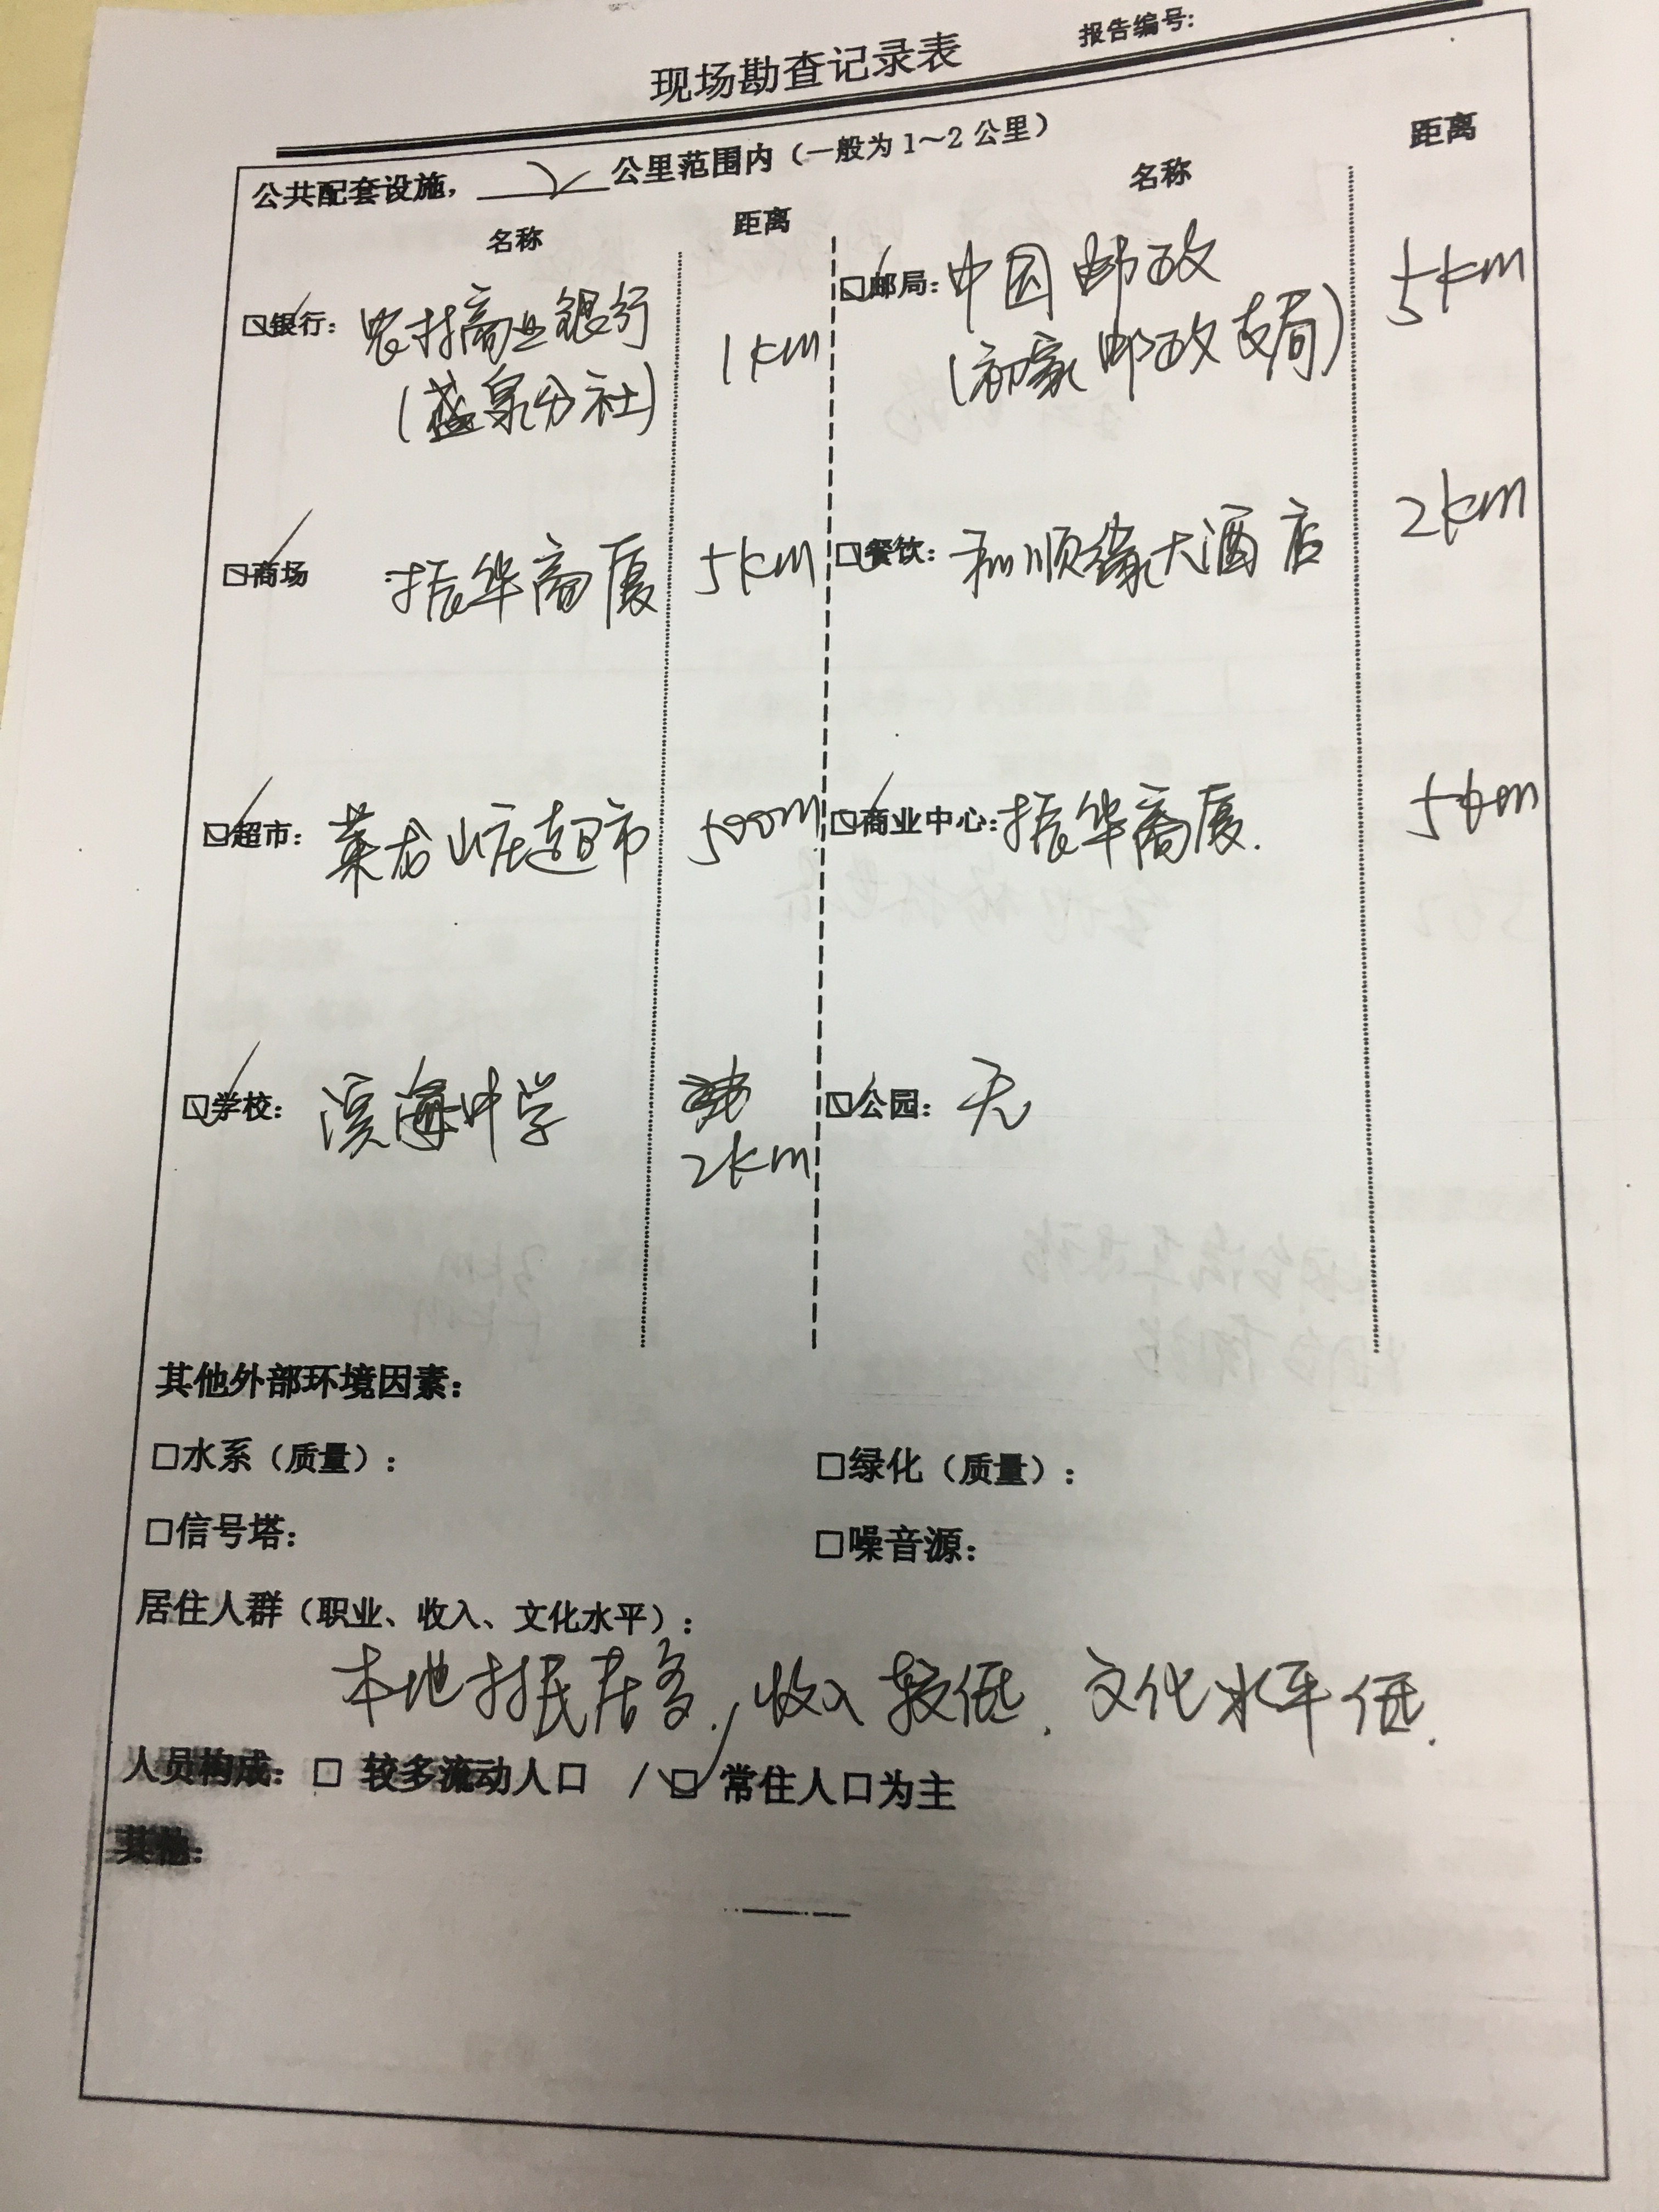 报告编号:
现场勘查记录表
公共配套设施, 2 公里范围内(一般为1~2公里)
名称 距离 名称 距离
☑银行: 农村商业银行 1km
(盛泉分社)
☑邮局: 中国邮政 5km
(初家邮政支局)
☑商场 振华商厦 5km
☑餐饮: 和顺缘大酒店 2km
☑超市: 莱龙山庄超市 500m
☑商业中心: 振华商厦. 5km
☑学校: 滨海中学
2km
☑公园: 无
其他外部环境因素:
□水系(质量): □绿化(质量):
□信号塔: □噪音源:
居住人群(职业、收入、文化水平):
本地村民居多, 收入较低、文化水平低.
人员构成: □ 较多流动人口 / ☑ 常住人口为主
其他: